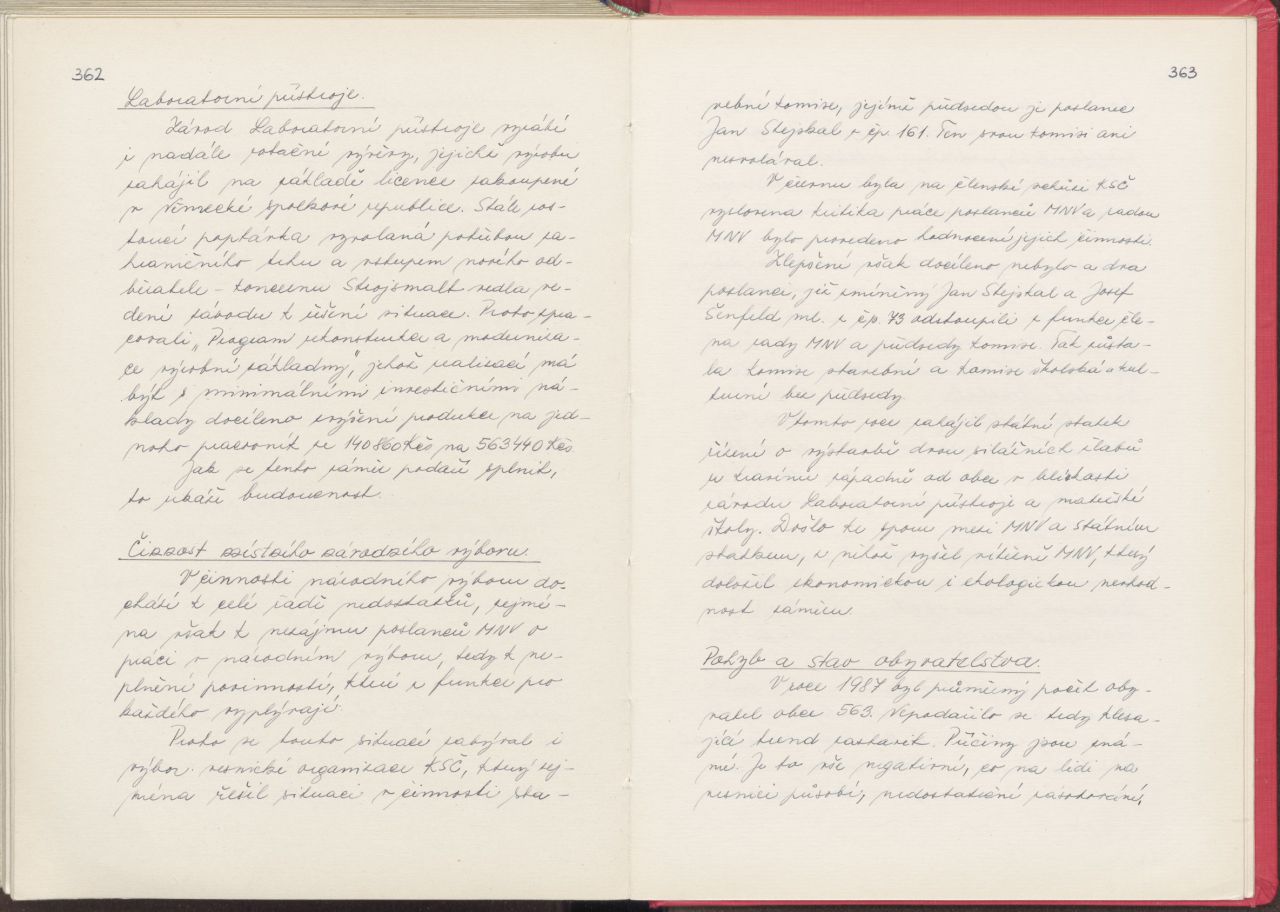 362
Laboratorní přístroje.
Závod Laboratorní přístroje vyrábí
i nadále rotační vývěvy, jejichž výrobu
zahájil na základě licence zakoupené
v Německé spolkové republice. Stále ros-
toucí poptávka vyvolaná potřebou za-
hraničního trhu a vstupem nového od-
běratele - koncernu Strojsmalt vedla ve-
dení závodu k řešení situace. Proto zpra-
covali „Program rekonstrukce a moderniza-
ce výrobní základny", jehož realizací má
být s minimálními investičními ná-
klady docíleno zvýšení produkce na jed-
noho pracovník ze 140860 Kčs na 563440 Kčs
Jak se tento záměr podaří splnit,
to ukáže budoucnost.
Činnost místního národního výboru.
V činnosti národního výboru do-
chází k celé řadě nedostatků, zejmé-
na však k nezájmu poslanců MNV o
práci v národním výboru, tedy k ne-
plnění povinností, které z funkce pro
každého vyplývají.
Proto se touto situací zabýval i
výbor vesnické organizace KSČ, který zej-
ména řešil situaci v činnosti sta-
363
vební komise, jejímž předsedou je poslanec
Jan Stejskal z čp. 161. Ten svou komisi ani
nesvolával.
V červnu byla na členské schůzi KSČ
vyslovena kritika práce poslanců MNV a radou
MNV bylo provedeno hodnocení jejich činnosti.
Zlepšení však docíleno nebylo a dva
poslanci, již zmíněný Jan Stejskal a Josef
Šenfeld ml. z čp. 73 odstoupili z funkce čle-
na rady MNV a předsedy komise. Tak zůsta-
la komise stavební a komise školská a kul-
turní bez předsedy.
V tomto roce zahájil státní statek
řízení o výstavbě dvou silážních žlabů
v terénu západně od obce v blízkosti
závodu Laboratorní přístroje a mateřské
školy. Došlo ke sporu mezi MNV a státním
statkem, z něhož vyšel vítězně MNV, který
doložil ekonomickou i ekologickou nevhod-
nost záměru
Pohyb a stav obyvatelstva.
V roce 1987 byl průměrný počet oby-
vatel obce 563. Nepodařilo se tedy klesa-
jící trend zastavit. Příčiny jsou zná-
mé. Je to vše negativní, co na lidi na
vesnici působí, nedostatečné zásobování,